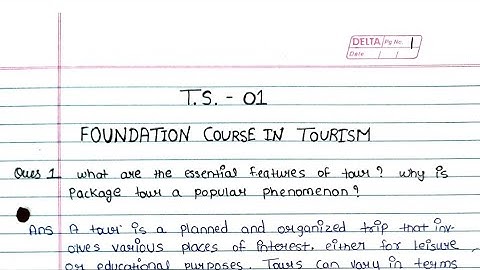 DELTA Pg No. 1
Date / /
T.S. - 01
FOUNDATION COURSE IN TOURISM
Ques 1 what are the essential features of tour? why is
package tour a popular phenomenon?
Ans A tour is a planned and organized trip that inv-
olves various places of interest, either for leisure
or educational purposes. Tours can vary in terms